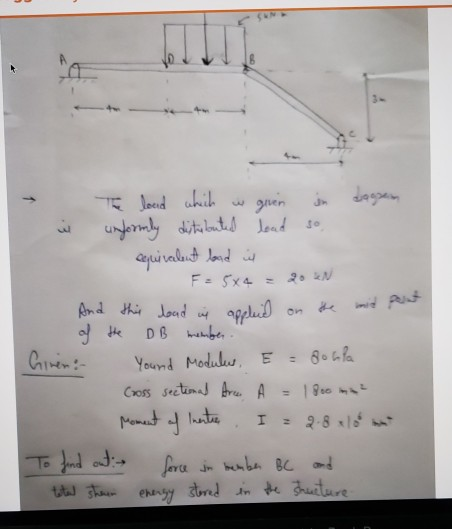 5 kN/m
A
D
B
4m
4m
3m
C
4m
→ The load which is given in diagram
is uniformly distributed load so,
equivalent load is
F = 5x4 = 20 kN
And this load is applied on the mid point
of the DB member.
Given:- Yound Modulus, E = 80 GPa
Cross sectional Area, A = 1800 mm²
Moment of Inertia, I = 2.8 x10⁶ mm⁴
To find out:→ force in member BC and
total strain energy stored in the structure